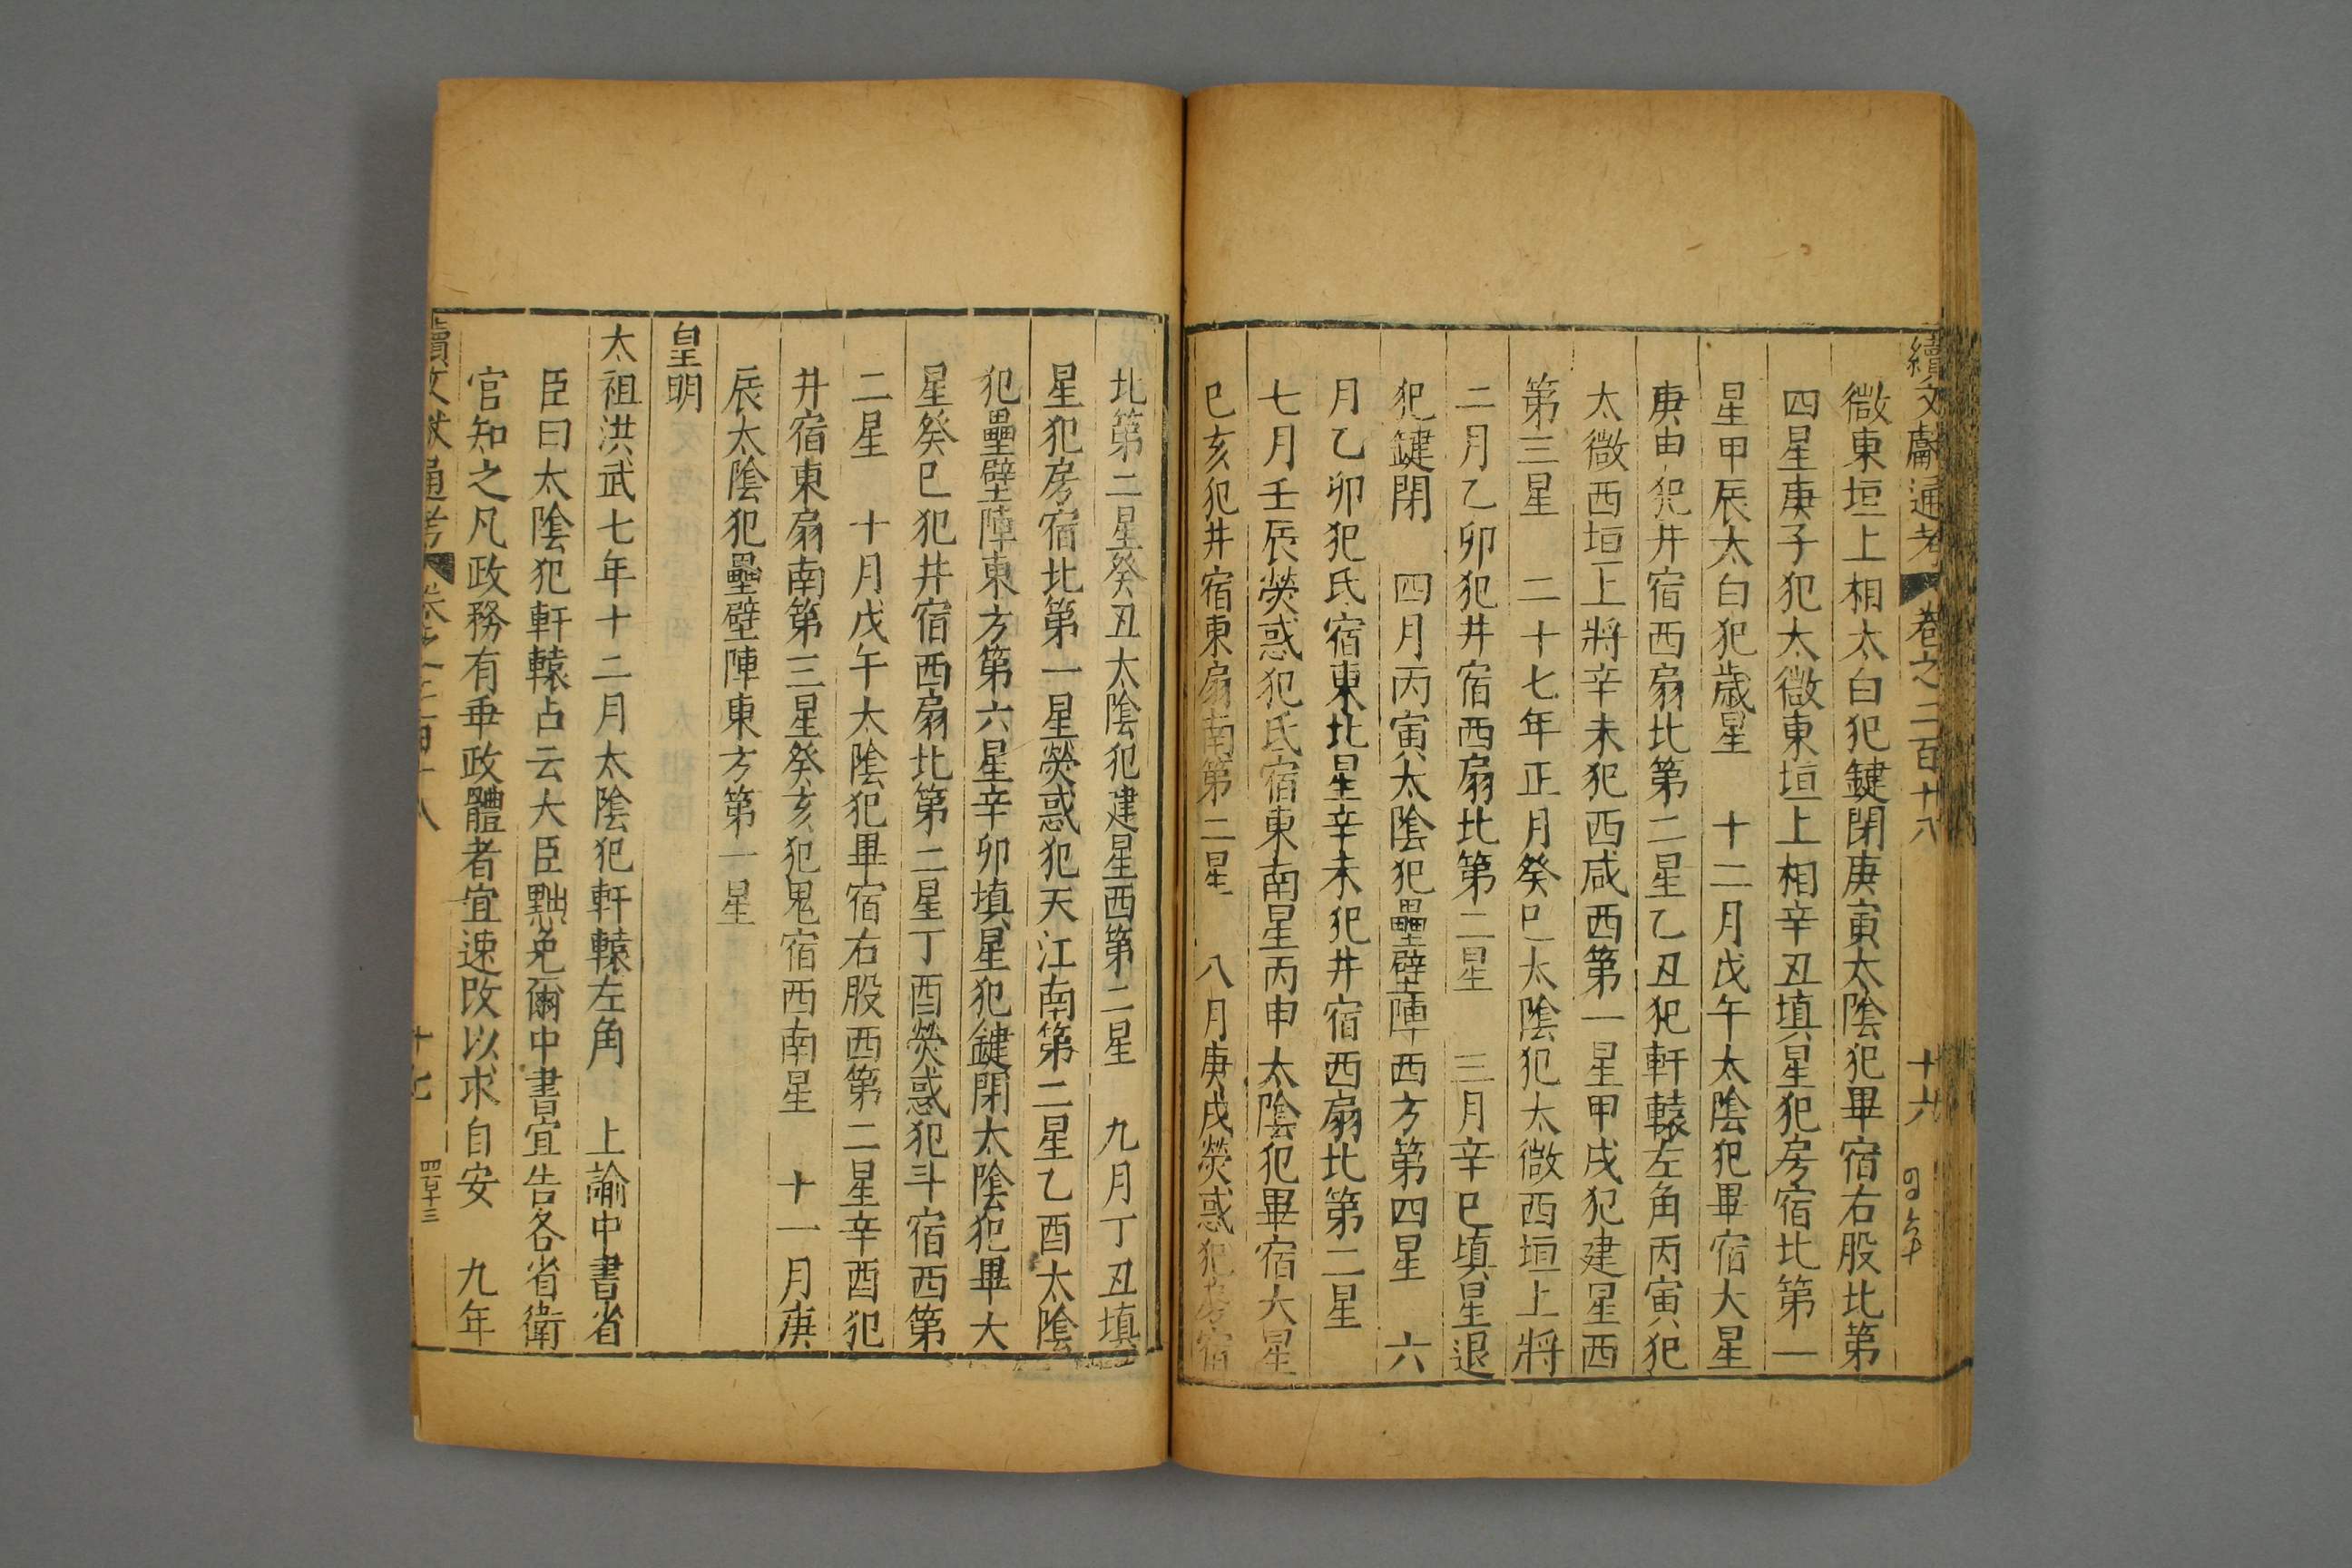 續文獻通考 卷之二百十八 十六
微東垣上相太白犯鍵閉庚寅太陰犯畢宿右股北第
四星庚子犯太微東垣上相辛丑填星犯房宿北第一
星甲辰太白犯歲星 十二月戊午太陰犯畢宿大星
庚申犯井宿西扇北第二星乙丑犯軒轅左角丙寅犯
太微西垣上將辛未犯西咸西第一星甲戌犯建星西
第三星 二十七年正月癸巳太陰犯太微西垣上將
二月乙卯犯井宿西扇北第二星 三月辛巳填星退
犯鍵閉 四月丙寅太陰犯壘壁陣西方第四星 六
月乙卯犯氐宿東北星辛未犯井宿西扇北第二星
七月壬辰熒惑犯氐宿東南星丙申太陰犯畢宿大星
巳亥犯井宿東扇南第二星 八月庚戌熒惑犯房宿
北第二星癸丑太陰犯建星西第二星 九月丁丑填
星犯房宿北第一星熒惑犯天江南第二星乙酉太陰
犯壘壁陣東方第六星辛卯填星犯鍵閉太陰犯畢大
星癸巳犯井宿西扇北第二星丁酉熒惑犯斗宿西第
二星 十月戊午太陰犯畢宿右股西第二星辛酉犯
井宿東扇南第三星癸亥犯鬼宿西南星 十一月庚
辰太陰犯壘壁陣東方第一星
皇明
太祖洪武七年十二月太陰犯軒轅左角 上諭中書省
臣曰太陰犯軒轅占云大臣黜免爾中書宜告各省衛
官知之凡政務有乖政體者宜速改以求自安 九年
續文獻通考 卷之二百十八 十七 四百十三